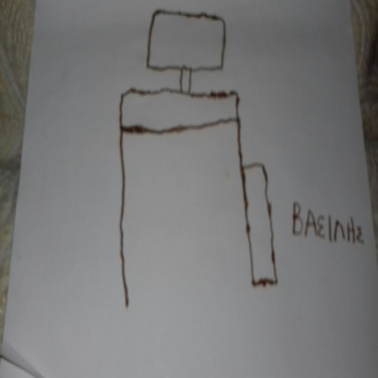 ΒΑΣΙΛΗΣ